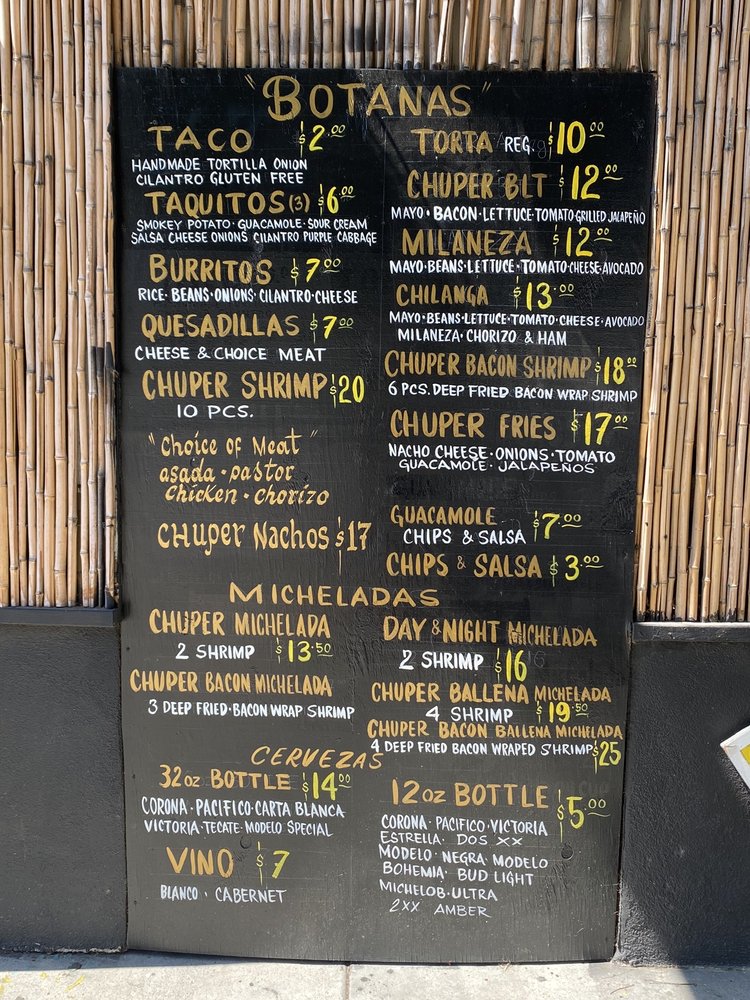 "BOTANAS"
TACO $2.00
HANDMADE TORTILLA ONION
CILANTRO GLUTEN FREE
TAQUITOS (3) $6.00
SMOKEY POTATO · GUACAMOLE · SOUR CREAM
SALSA CHEESE ONIONS CILANTRO PURPLE CABBAGE
BURRITOS $7.00
RICE · BEANS · ONIONS · CILANTRO · CHEESE
QUESADILLAS $7.00
CHEESE & CHOICE MEAT
CHUPER SHRIMP $20
10 PCS.
"Choice of Meat"
asada · pastor
chicken · chorizo
CHUPER NACHOS $17
TORTA REG. $10.00
CHUPER BLT $12.00
MAYO · BACON · LETTUCE · TOMATO · GRILLED JALAPEÑO
MILANEZA $12.00
MAYO · BEANS · LETTUCE · TOMATO · CHEESE · AVOCADO
CHILANGA $13.00
MAYO · BEANS · LETTUCE · TOMATO · CHEESE · AVOCADO
MILANEZA · CHORIZO & HAM
CHUPER BACON SHRIMP $18.00
6 PCS. DEEP FRIED BACON WRAP SHRIMP
CHUPER FRIES $17.00
NACHO CHEESE · ONIONS · TOMATO
GUACAMOLE · JALAPEÑOS
GUACAMOLE $7.00
CHIPS & SALSA
CHIPS & SALSA $3.00
MICHELADAS
CHUPER MICHELADA
2 SHRIMP $13.50
CHUPER BACON MICHELADA
3 DEEP FRIED · BACON WRAP SHRIMP
DAY & NIGHT MICHELADA
2 SHRIMP $16
CHUPER BALLENA MICHELADA
4 SHRIMP $19.50
CHUPER BACON BALLENA MICHELADA
4 DEEP FRIED BACON WRAPED SHRIMP $25
CERVEZAS
32 oz BOTTLE $14.00
CORONA · PACIFICO · CARTA BLANCA
VICTORIA · TECATE · MODELO SPECIAL
VINO $7
BLANCO · CABERNET
12 oz BOTTLE $5.00
CORONA · PACIFICO · VICTORIA
ESTRELLA · DOS XX
MODELO · NEGRA · MODELO
BOHEMIA · BUD LIGHT
MICHELOB · ULTRA
2XX AMBER